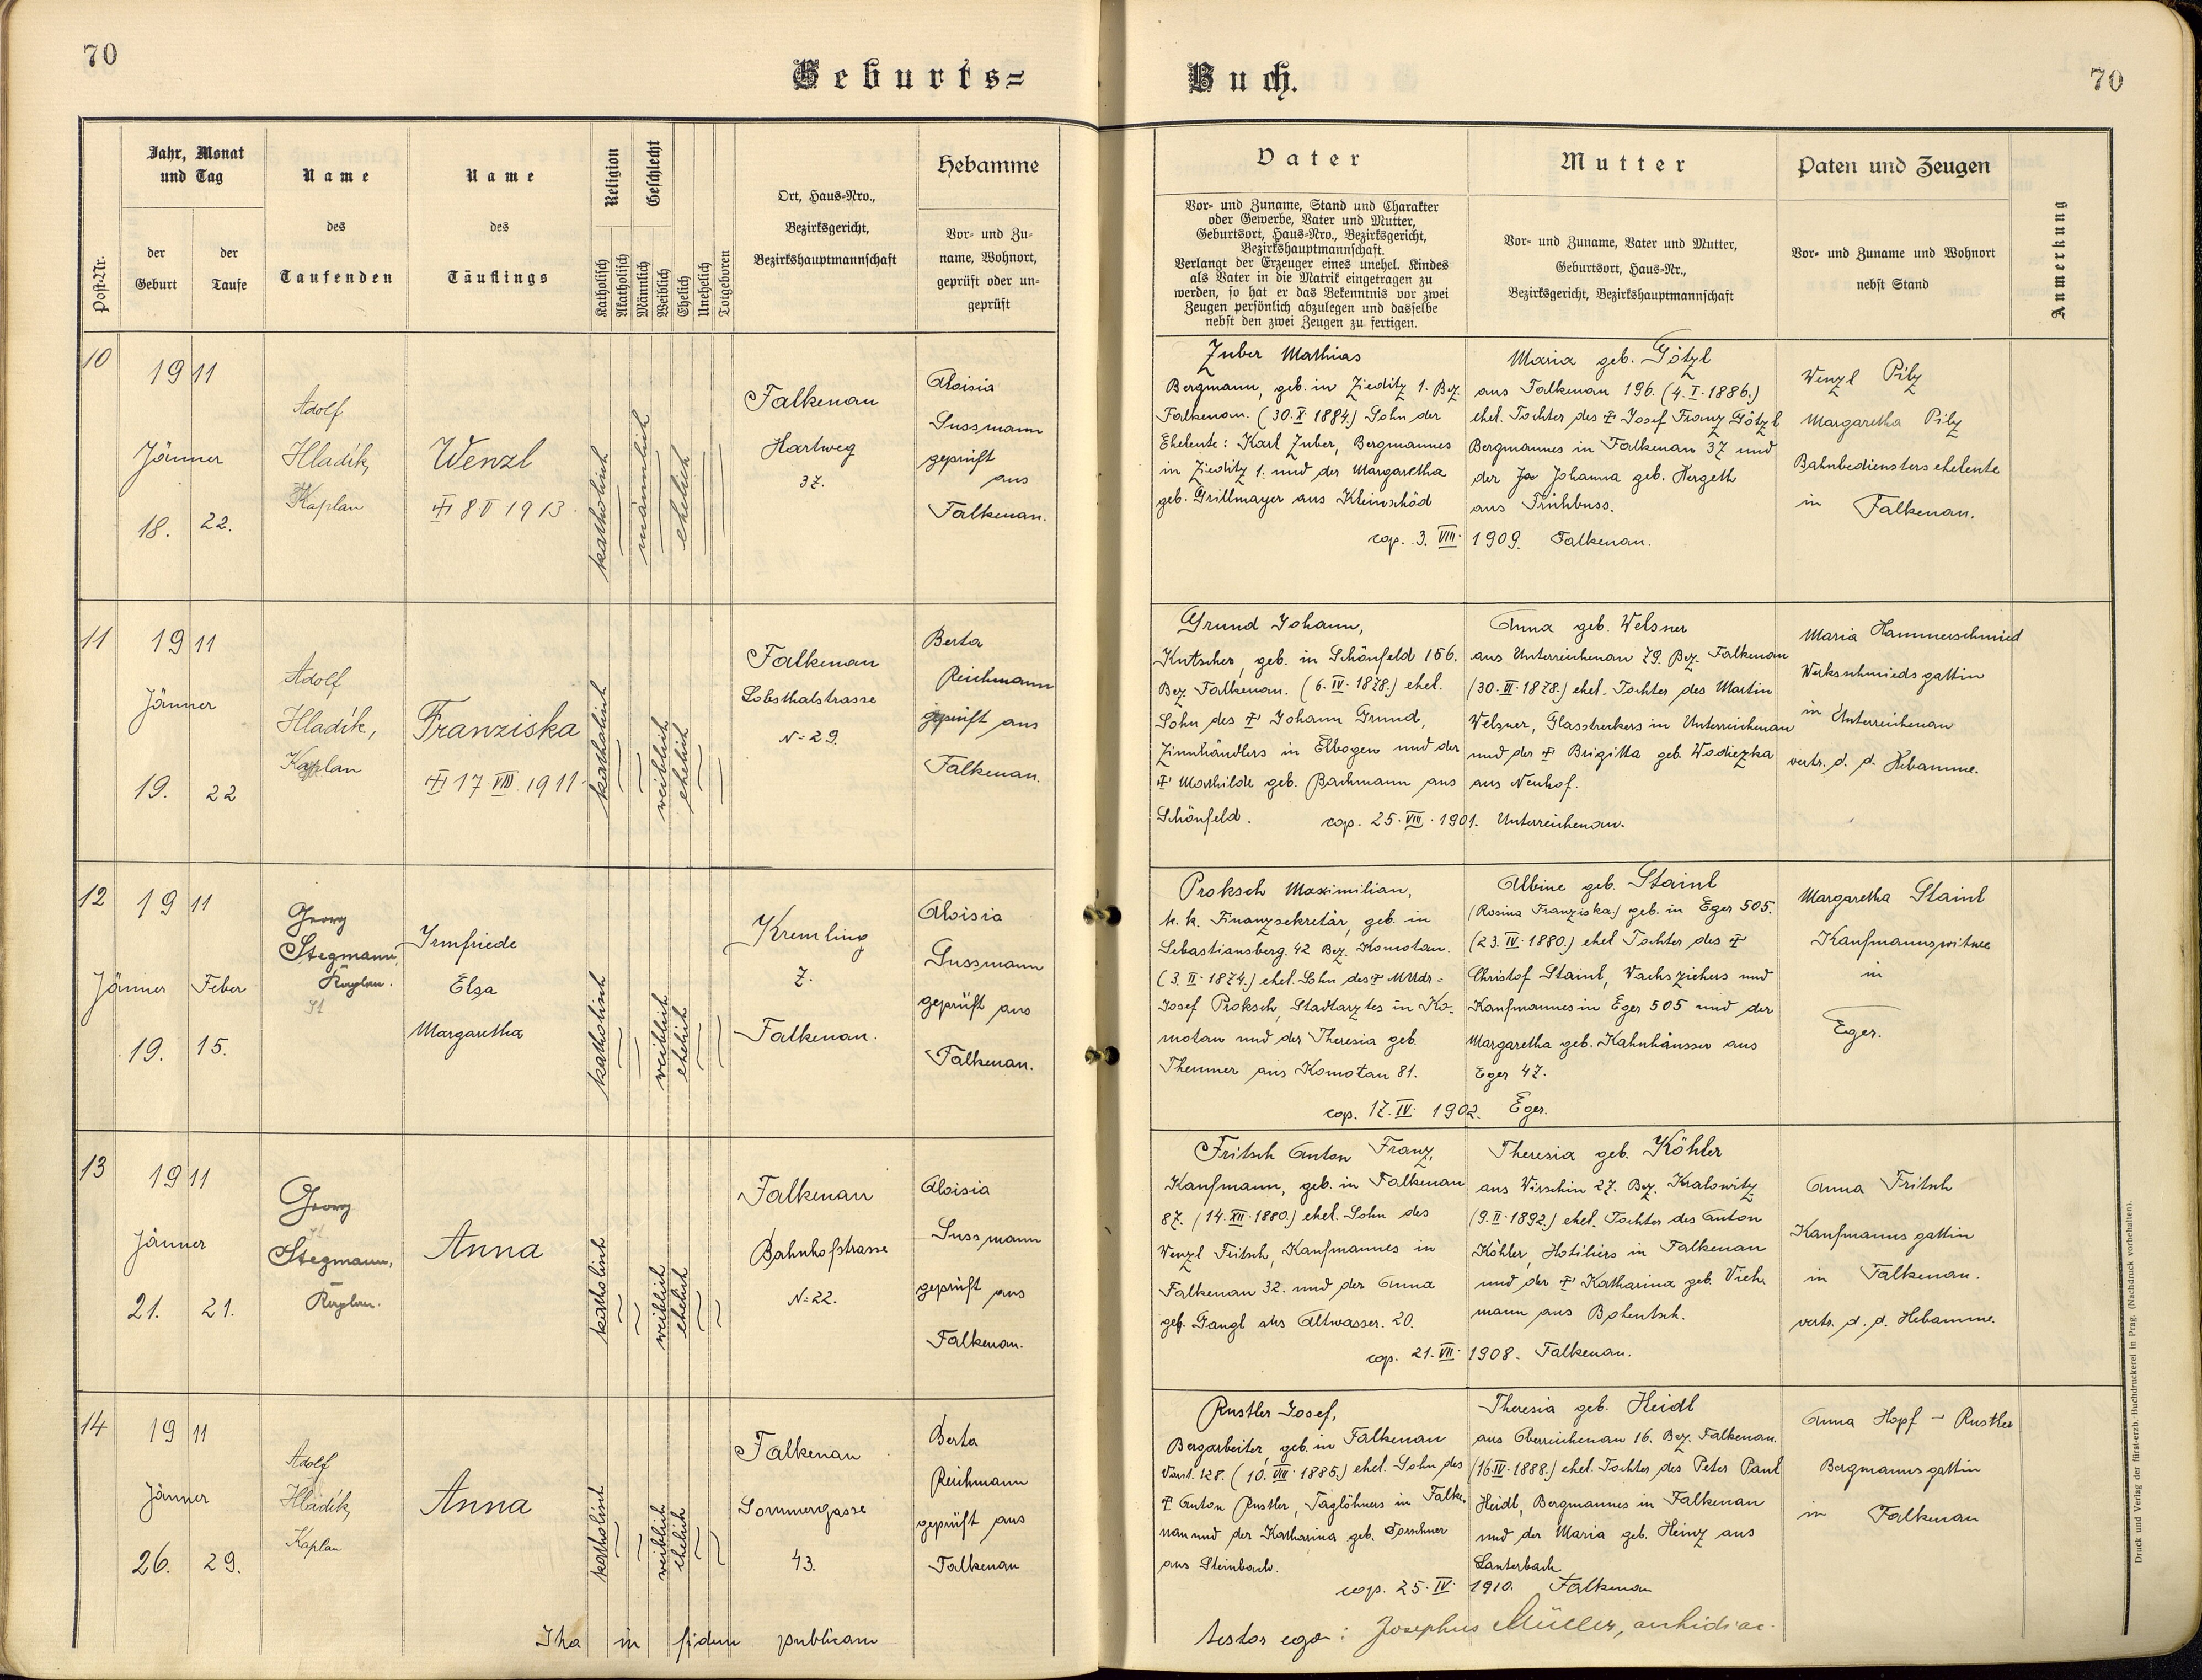 70
Geburts=
Buch.
70
Post-Nr.
Jahr, Monat
und Tag
der
Geburt
der
Taufe
Name
des
Taufenden
Name
des
Täuflings
Religion
Geschlecht
Katholisch
Akatholisch
Männlich
Weiblich
Ehelich
Unehelich
Totgeboren
Ort, Haus-Nro.,
Bezirksgericht,
Bezirkshauptmannschaft
Hebamme
Vor- und Zu-
name, Wohnort,
geprüft oder un-
geprüft
Vater
Vor- und Zuname, Stand und Charakter
oder Gewerbe, Vater und Mutter,
Geburtsort, Haus-Nro., Bezirksgericht,
Bezirkshauptmannschaft.
Verlangt der Erzeuger eines unehel. Kindes
als Vater in die Matrik eingetragen zu
werden, so hat er das Bekenntnis vor zwei
Zeugen persönlich abzulegen und dasselbe
nebst den zwei Zeugen zu fertigen.
Mutter
Vor- und Zuname, Vater und Mutter,
Geburtsort, Haus-Nr.,
Bezirksgericht, Bezirkshauptmannschaft
Paten und Zeugen
Vor- und Zuname und Wohnort
nebst Stand
Anmerkung
10
1911
Jänner
18. 22.
Adolf
Hladík,
Kaplan
Wenzl
8 II 1913.
katholisch
männlich
ehelich
Falkenau
Hartweg
37.
Aloisia
Sussmann
geprüft
aus
Falkenau.
Zuber Mathias
Bergmann, geb. in Zieditz 1. Bez.
Falkenau. (30.X.1884.) Sohn der
Eheleute: Karl Zuber, Bergmannes
in Zieditz 1. und der Margaretha
geb. Grillmayer aus Kleinschöd
Maria geb. Götzl
aus Falkenau 196. (4.I.1886.)
ehel. Tochter des † Josef Franz Götzl
Bergmannes in Falkenau 37 und
der Johanna geb. Hergeth
aus Frühbuss.
cop. 3. VIII. 1909. Falkenau.
Wenzl Pilz
Margaretha Pilz
Bahnbediensterseheleute
in Falkenau.
11
1911
Jänner
19. 22
Adolf
Hladík,
Kaplan
Franziska
17 VIII. 1911.
katholisch
weiblich
ehelich
Falkenau
Lobsthalstrasse
N=29.
Berta
Reichmann
geprüft aus
Falkenau.
Grund Johann,
Kutscher, geb. in Schönfeld 156.
Bez. Falkenau. (6.IV.1878.) ehel.
Sohn des † Johann Grund,
Zinnhändlers in Elbogen und der
† Mathilde geb. Bachmann aus
Schönfeld.
Anna geb. Welsner
aus Unterreichenau 79. Bez. Falkenau
(30.VI.1878.) ehel. Tochter des Martin
Welsner, Glasstreckers in Unterreichenau
und der † Brigitta geb. Wodiczka
aus Neuhof.
cop. 25.VIII.1901. Unterreichenau.
Maria Hammerschmied
Werksschmiedsgattin
in Unterreichenau
vertr. d. d. Hebamme.
12
1911
Jänner Feber
19. 15.
Georg
Stegmann,
Kaplan.
Irmfriede
Elsa
Margaretha
katholisch
weiblich
ehelich
Kremling
7.
Falkenau.
Aloisia
Sussmann
geprüft aus
Falkenau.
Proksch Maximilian,
k. k. Finanzsekretär, geb. in
Sebastiansberg. 42 Bez. Komotau.
(3.II.1874.) ehel. Sohn des † MUdr.
Josef Proksch, Stadtarztes in Ko-
motau und der Theresia geb.
Themmer aus Komotau 81.
Albine geb. Stainl
(Rosina Franziska.) geb. in Eger 505.
(23.IV.1880.) ehel Tochter des †
Christof Stainl, Wachsziehers und
Kaufmannes in Eger 505 und der
Margaretha geb. Kahnhäusser aus
Eger 47.
cop. 17.IV. 1902. Eger.
Margaretha Stainl
Kaufmannswitwe
in
Eger.
13
1911
Jänner
21. 21.
Georg
Stegmann,
Kaplan.
Anna
katholisch
weiblich
ehelich
Falkenau
Bahnhofstrasse
N=22.
Aloisia
Sussmann
geprüft aus
Falkenau.
Fritsch Anton Franz,
Kaufmann, geb. in Falkenau
87. (14.XII.1880.) ehel. Sohn des
Wenzl Fritsch, Kaufmannes in
Falkenau 32. und der Anna
geb. Gangl aus Altwasser. 20.
Theresia geb. Köhler
aus Wirschin 27. Bez. Kralowitz
(9.II.1892.) ehel. Tochter des Anton
Köhler, Hoteliers in Falkenau
und der † Katharina geb. Vieh-
mann aus Bohentsch.
cop. 21.VII. 1908. Falkenau.
Anna Fritsch
Kaufmannsgattin
in Falkenau.
vertr. d. d. Hebamme.
14
1911
Jänner
26. 29.
Adolf
Hladík,
Kaplan
Anna
katholisch
weiblich
ehelich
Falkenau
Sommergasse
43.
Berta
Reichmann
geprüft aus
Falkenau
Rustler Josef,
Bergarbeiter, geb. in Falkenau
Vorst. 128. (10.VIII.1885.) ehel. Sohn des
† Anton Rustler, Taglöhners in Falke-
nau und der Katharina geb.
aus Steinbach.
Theresia geb. Heidl
aus Oberreichenau 16. Bez. Falkenau.
(16.IV.1888.) ehel. Tochter des Peter Paul
Heidl, Bergmannes in Falkenau
und der Maria geb. Heinz aus
Lauterbach
cop. 25.IV. 1910. Falkenau
Anna Hopf - Rustler
Bergmannsgattin
in Falkenau
Ita in fidem publicam
testor ego: Josephus Müller, archidiac.
Druck und Verlag der fürst-erzb. Buchdruckerei in Prag. (Nachdruck vorbehalten).